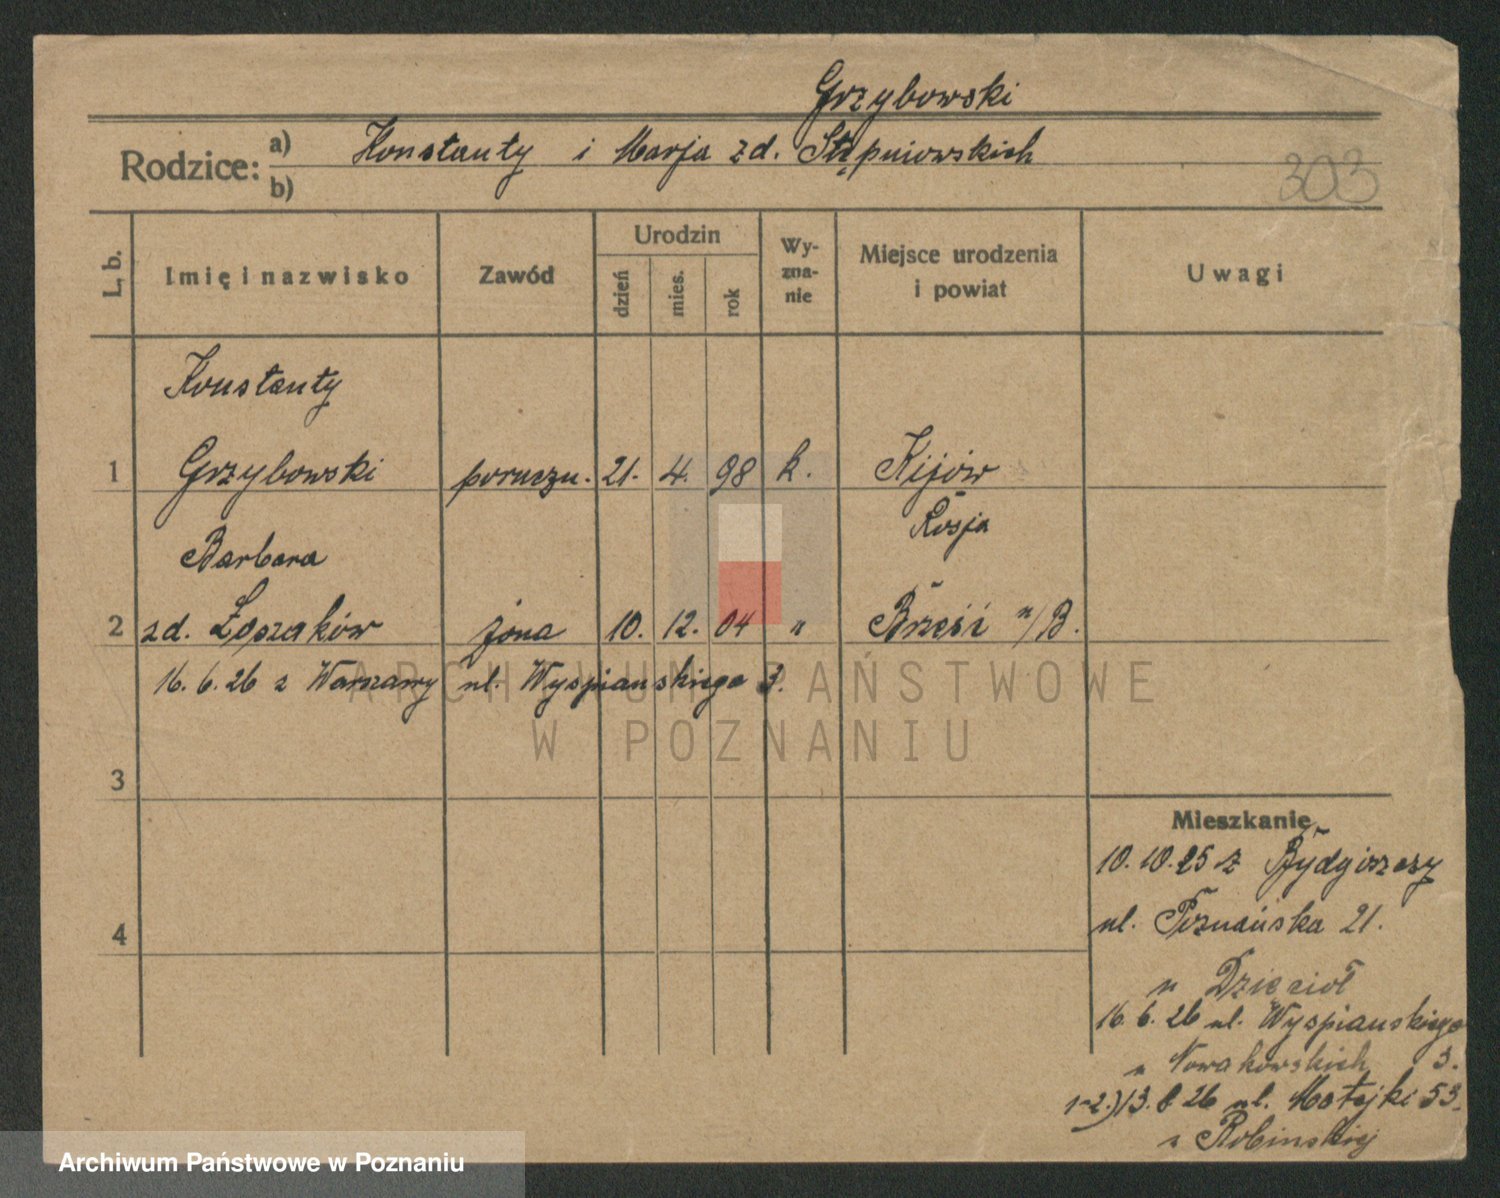 Grzybowski
Rodzice: a) Konstanty i Marja zd. Stępniowskich
b)
303
L. b. Imię i nazwisko Zawód Urodzin dzień mies. rok Wy-zna-nie Miejsce urodzenia i powiat Uwagi
Konstanty
1 Grzybowski poruczn. 21. 4. 98 k. Kijów
Rosja
Barbara
2 zd. Łopzaków żona 10. 12. 04 " Brześć n/B.
16. 6. 26 z Warszawy ul. Wyspiańskiego 3.
ARCHIWUM PAŃSTWOWE
W POZNANIU
3
4
Mieszkanie
10. 10. 25 z Bydgoszczy
ul. Poznańska 21.
u Dzięcioł
16. 6. 26 ul. Wyspiańskiego
u Nowakowskich 3.
1-2.) 13. 8 26 ul. Matejki 53.
u Robinskiej
Archiwum Państwowe w Poznaniu